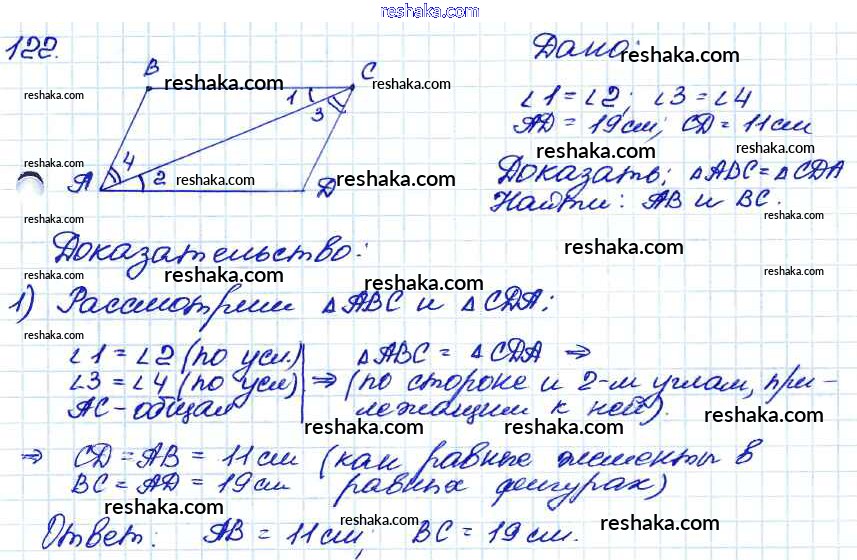 reshaka.com
122.
B
reshaka.com
C
reshaka.com
Дано: reshaka.com
reshaka.com
1
3
reshaka.com
∠1 = ∠2; ∠3 = ∠4
reshaka.com
AD = 19 см; CD = 11 см
reshaka.com
4
reshaka.com
reshaka.com
A
2
reshaka.com
D
reshaka.com
Доказать: △ABC = △CDA
reshaka.com
Найти: AB и BC.
reshaka.com
Доказательство:
reshaka.com
reshaka.com
1) Рассмотрим △ABC и △CDA:
reshaka.com
reshaka.com
reshaka.com
∠1 = ∠2 (по усл.) △ABC = △CDA ⇒
reshaka.com
∠3 = ∠4 (по усл) ⇒ (по стороне и 2-м углам, при-
reshaka.com
AC - общая лежащим к ней).
reshaka.com
reshaka.com
reshaka.com
⇒ CD = AB = 11 см (как равные элементы в
BC = AD = 19 см равных фигурах)
reshaka.com
reshaka.com
reshaka.com
Ответ: AB = 11 см; BC = 19 см.
reshaka.com
reshaka.com
reshaka.com